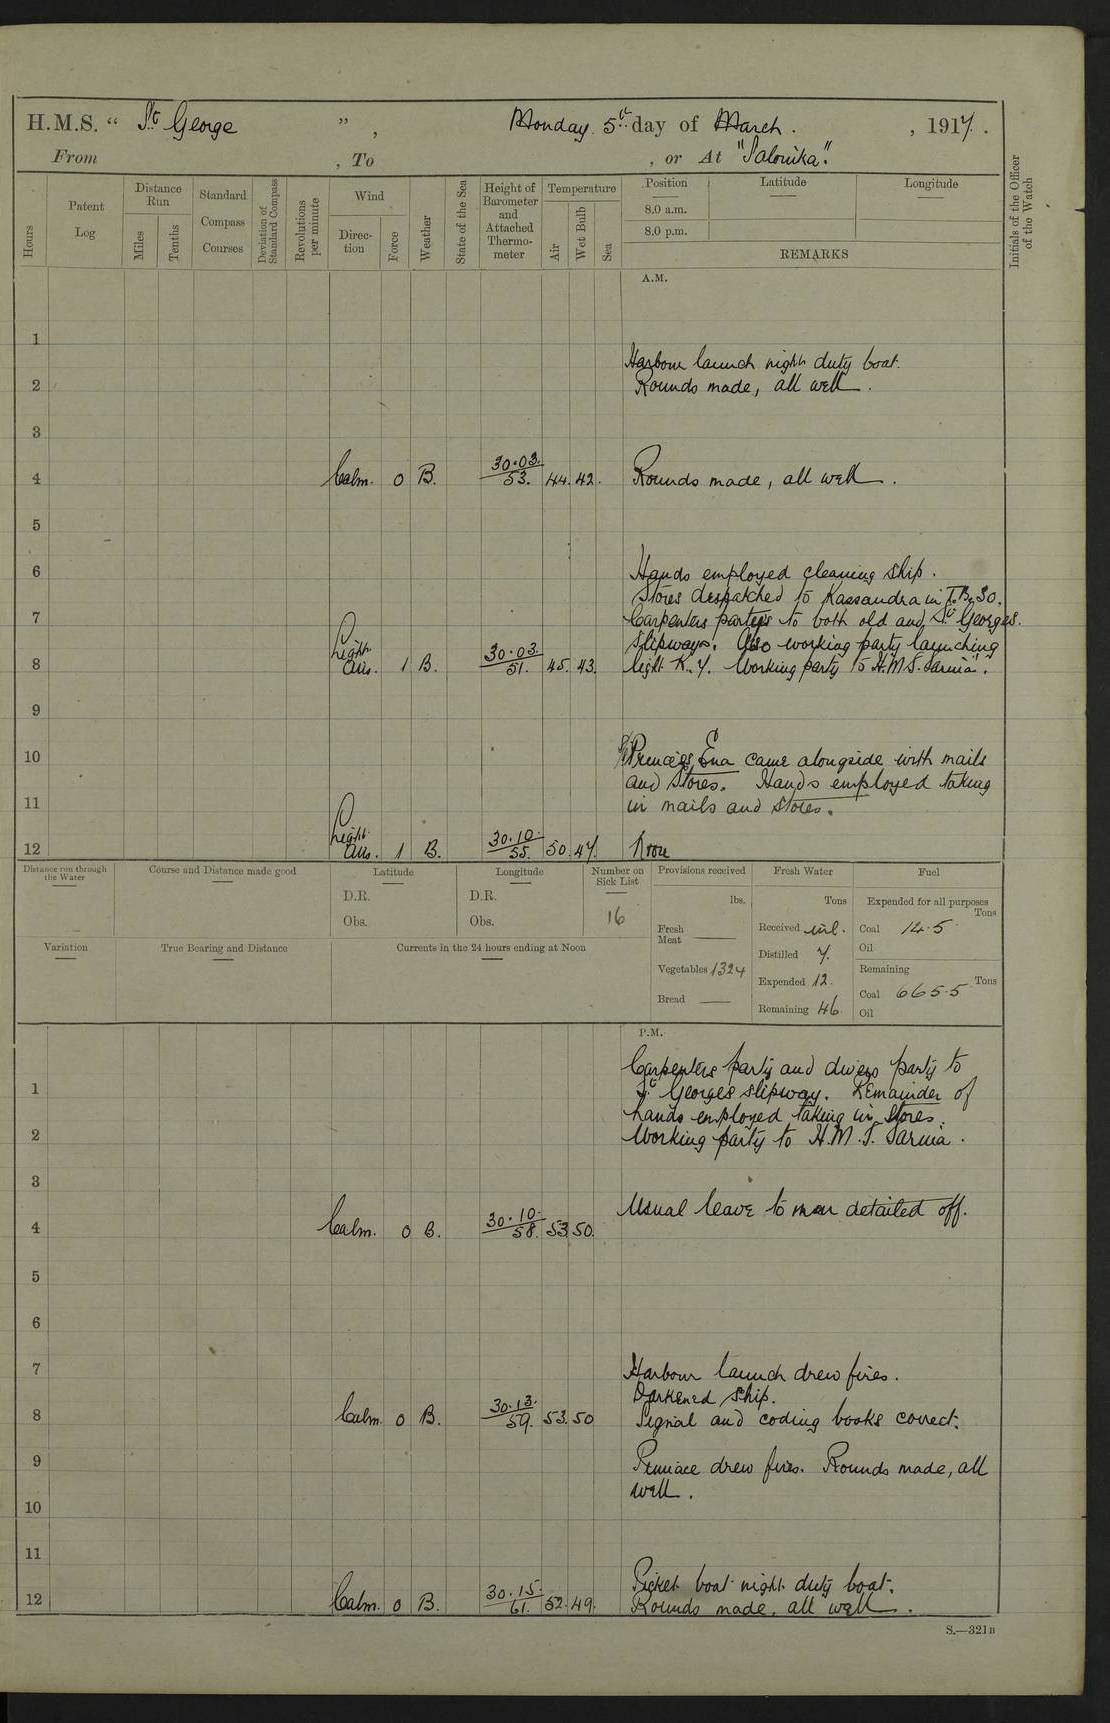 H.M.S. “ St George ” , Monday 5th day of March. , 1917.
From , To , or At "Salonika".
Hours
Patent Log
Distance Run
Miles
Tenths
Standard Compass Courses
Deviation of Standard Compass
Revolutions per minute
Wind
Direction
Force
Weather
State of the Sea
Height of Barometer and Attached Thermometer
Temperature
Air
Wet Bulb
Sea
Position
Latitude
Longitude
8.0 a.m.
8.0 p.m.
REMARKS
Initials of the Officer of the Watch
A.M.
1
Harbour launch night duty boat.
2 Rounds made, all well.
3
4 Calm. 0 B. 30.03. 53. 44. 42. Rounds made, all well.
5
6 Hands employed cleaning ship.
Stores despatched to Kassandra in T.B. 30.
7 Carpenters parteis to both old and St Georges.
slipways. Also working party launching
8 Light Airs. 1 B. 30.03. 51. 45. 43. light K.Y. Working party to H.M.S. Sarnia".
9
10 S/S Princess Ena came alongside with mails
and stores. Hands employed taking
11 in mails and stores.
12 Light Airs. 1 B. 30.10. 55. 50. 47. Noon
Distance run through the Water
Course and Distance made good
Latitude
D.R.
Obs.
Longitude
D.R.
Obs.
Number on Sick List
16
Provisions received
lbs.
Fresh Meat
Vegetables 1324
Bread
Fresh Water
Tons
Received nil.
Distilled 7.
Expended 12.
Remaining 46.
Fuel
Expended for all purposes
Tons
Coal 14.5
Oil
Remaining
Tons
Coal 665.5
Oil
Variation
True Bearing and Distance
Currents in the 24 hours ending at Noon
P.M.
Carpenters party and divers party to
1 St Georges slipway. Remainder of
hands employed taking in stores.
2 Working party to H.M.S. Sarnia.
3
Usual leave to men detailed off.
4 Calm. 0 B. 30.10. 58. 53. 50.
5
6
7 Harbour launch drew fires.
Darkened ship.
8 Calm. 0 B. 30.13. 59. 53. 50 Signal and coding books correct.
9 Pinnace drew fires. Rounds made, all
well.
10
11
Picket boat night duty boat.
12 Calm. 0 B. 30.15. 61. 52. 49. Rounds made, all well.
S.—321B